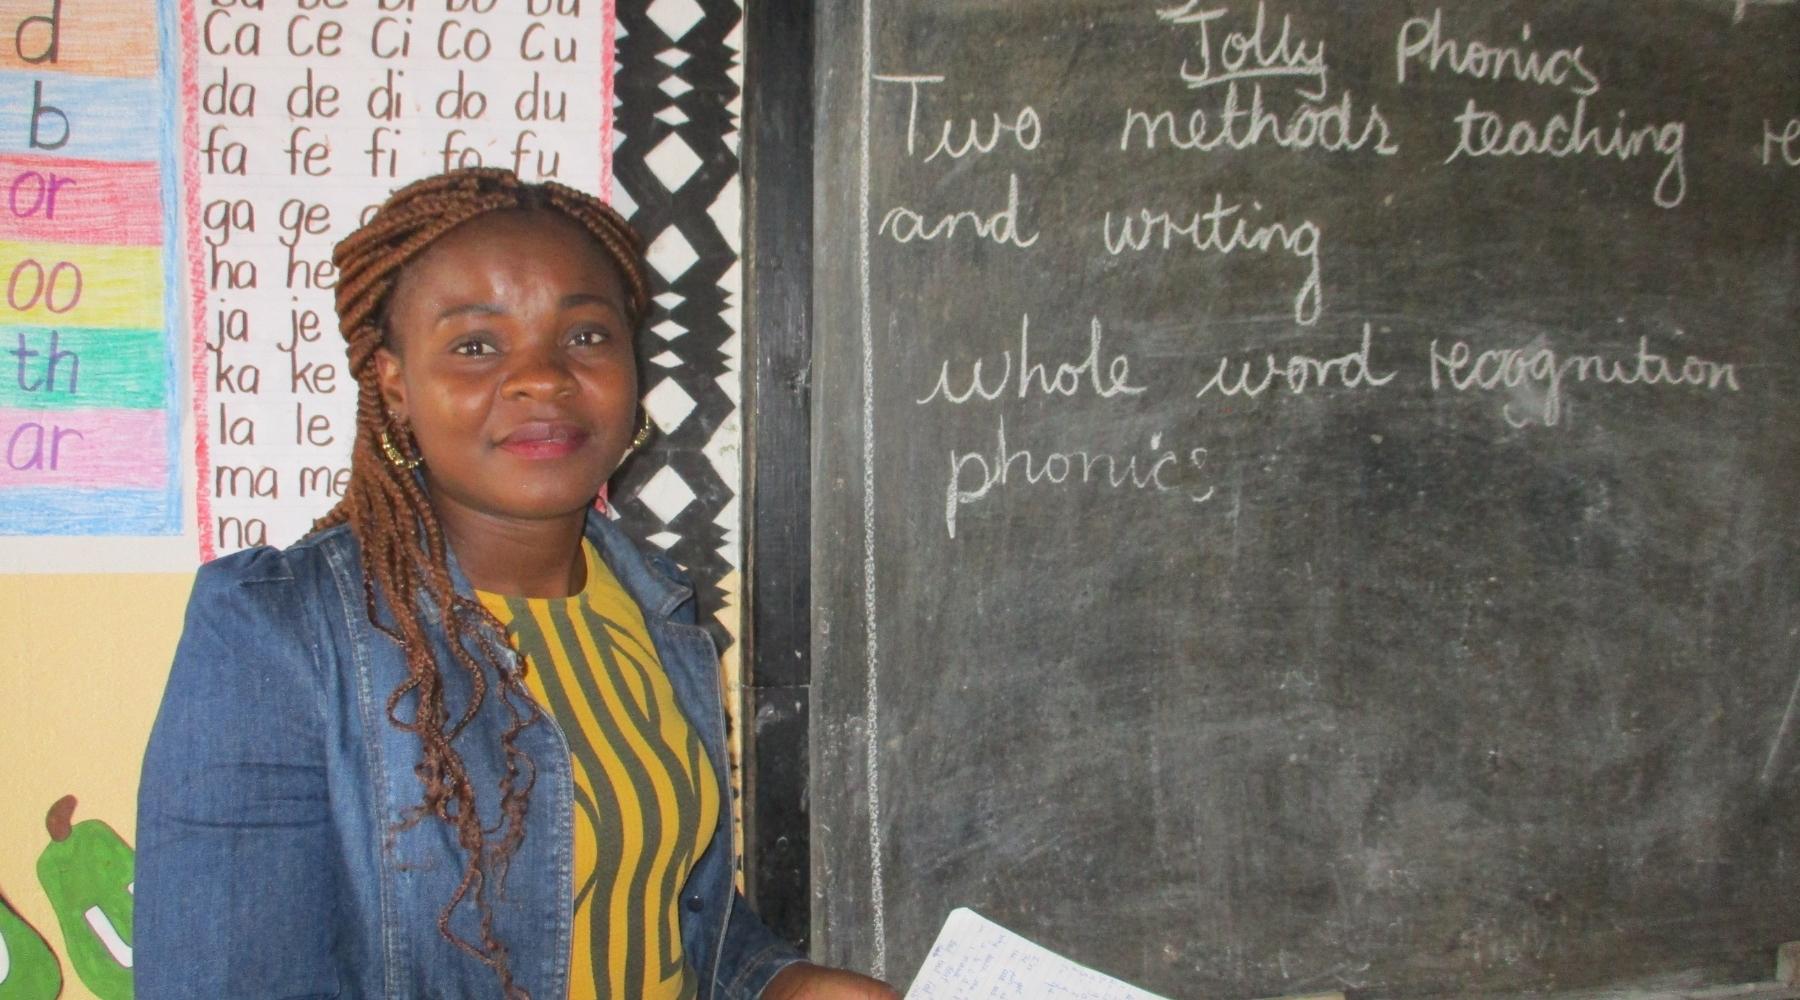 d
b
or
oo
th
ar
Ca Ce Ci Co Cu
da de di do du
fa fe fi fo fu
ga ge
ha he
ja je
ka ke
la le
ma me
na
Jolly Phonics
Two methods teaching re
and writing
whole word recognition
phonics